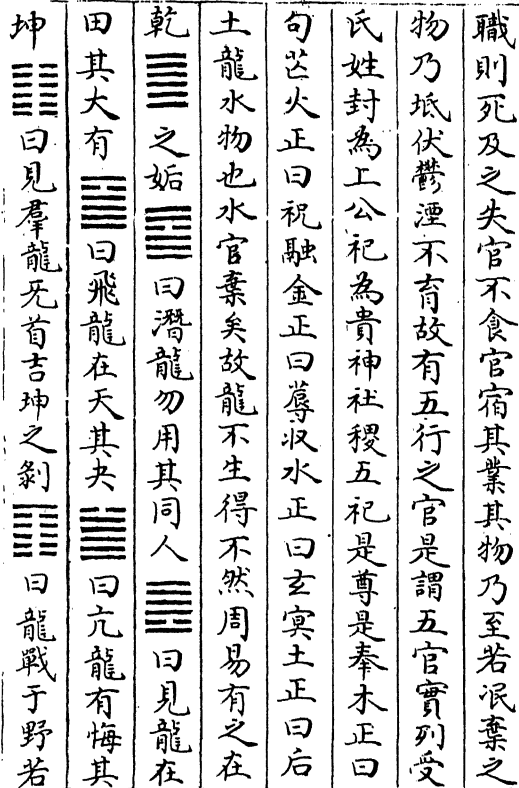 職則死及之失官不食官宿其業其物乃至若泯棄之
物乃坻伏鬱湮不育故有五行之官是謂五官實列受
氏姓封為上公祀為貴神社稷五祀是尊是奉木正曰
句芒火正曰祝融金正曰蓐收水正曰玄冥土正曰后
土龍水物也水官棄矣故龍不生得不然周易有之在
乾䷀之姤䷫曰潛龍勿用其同人䷌曰見龍在
田其大有䷍曰飛龍在天其夬䷪曰亢龍有悔其
坤䷁曰見羣龍旡首吉坤之剝䷖曰龍戰于野若